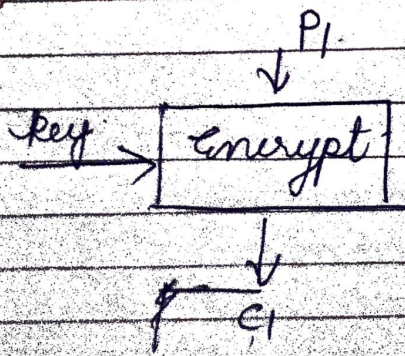 P1
key
Encrypt
C1